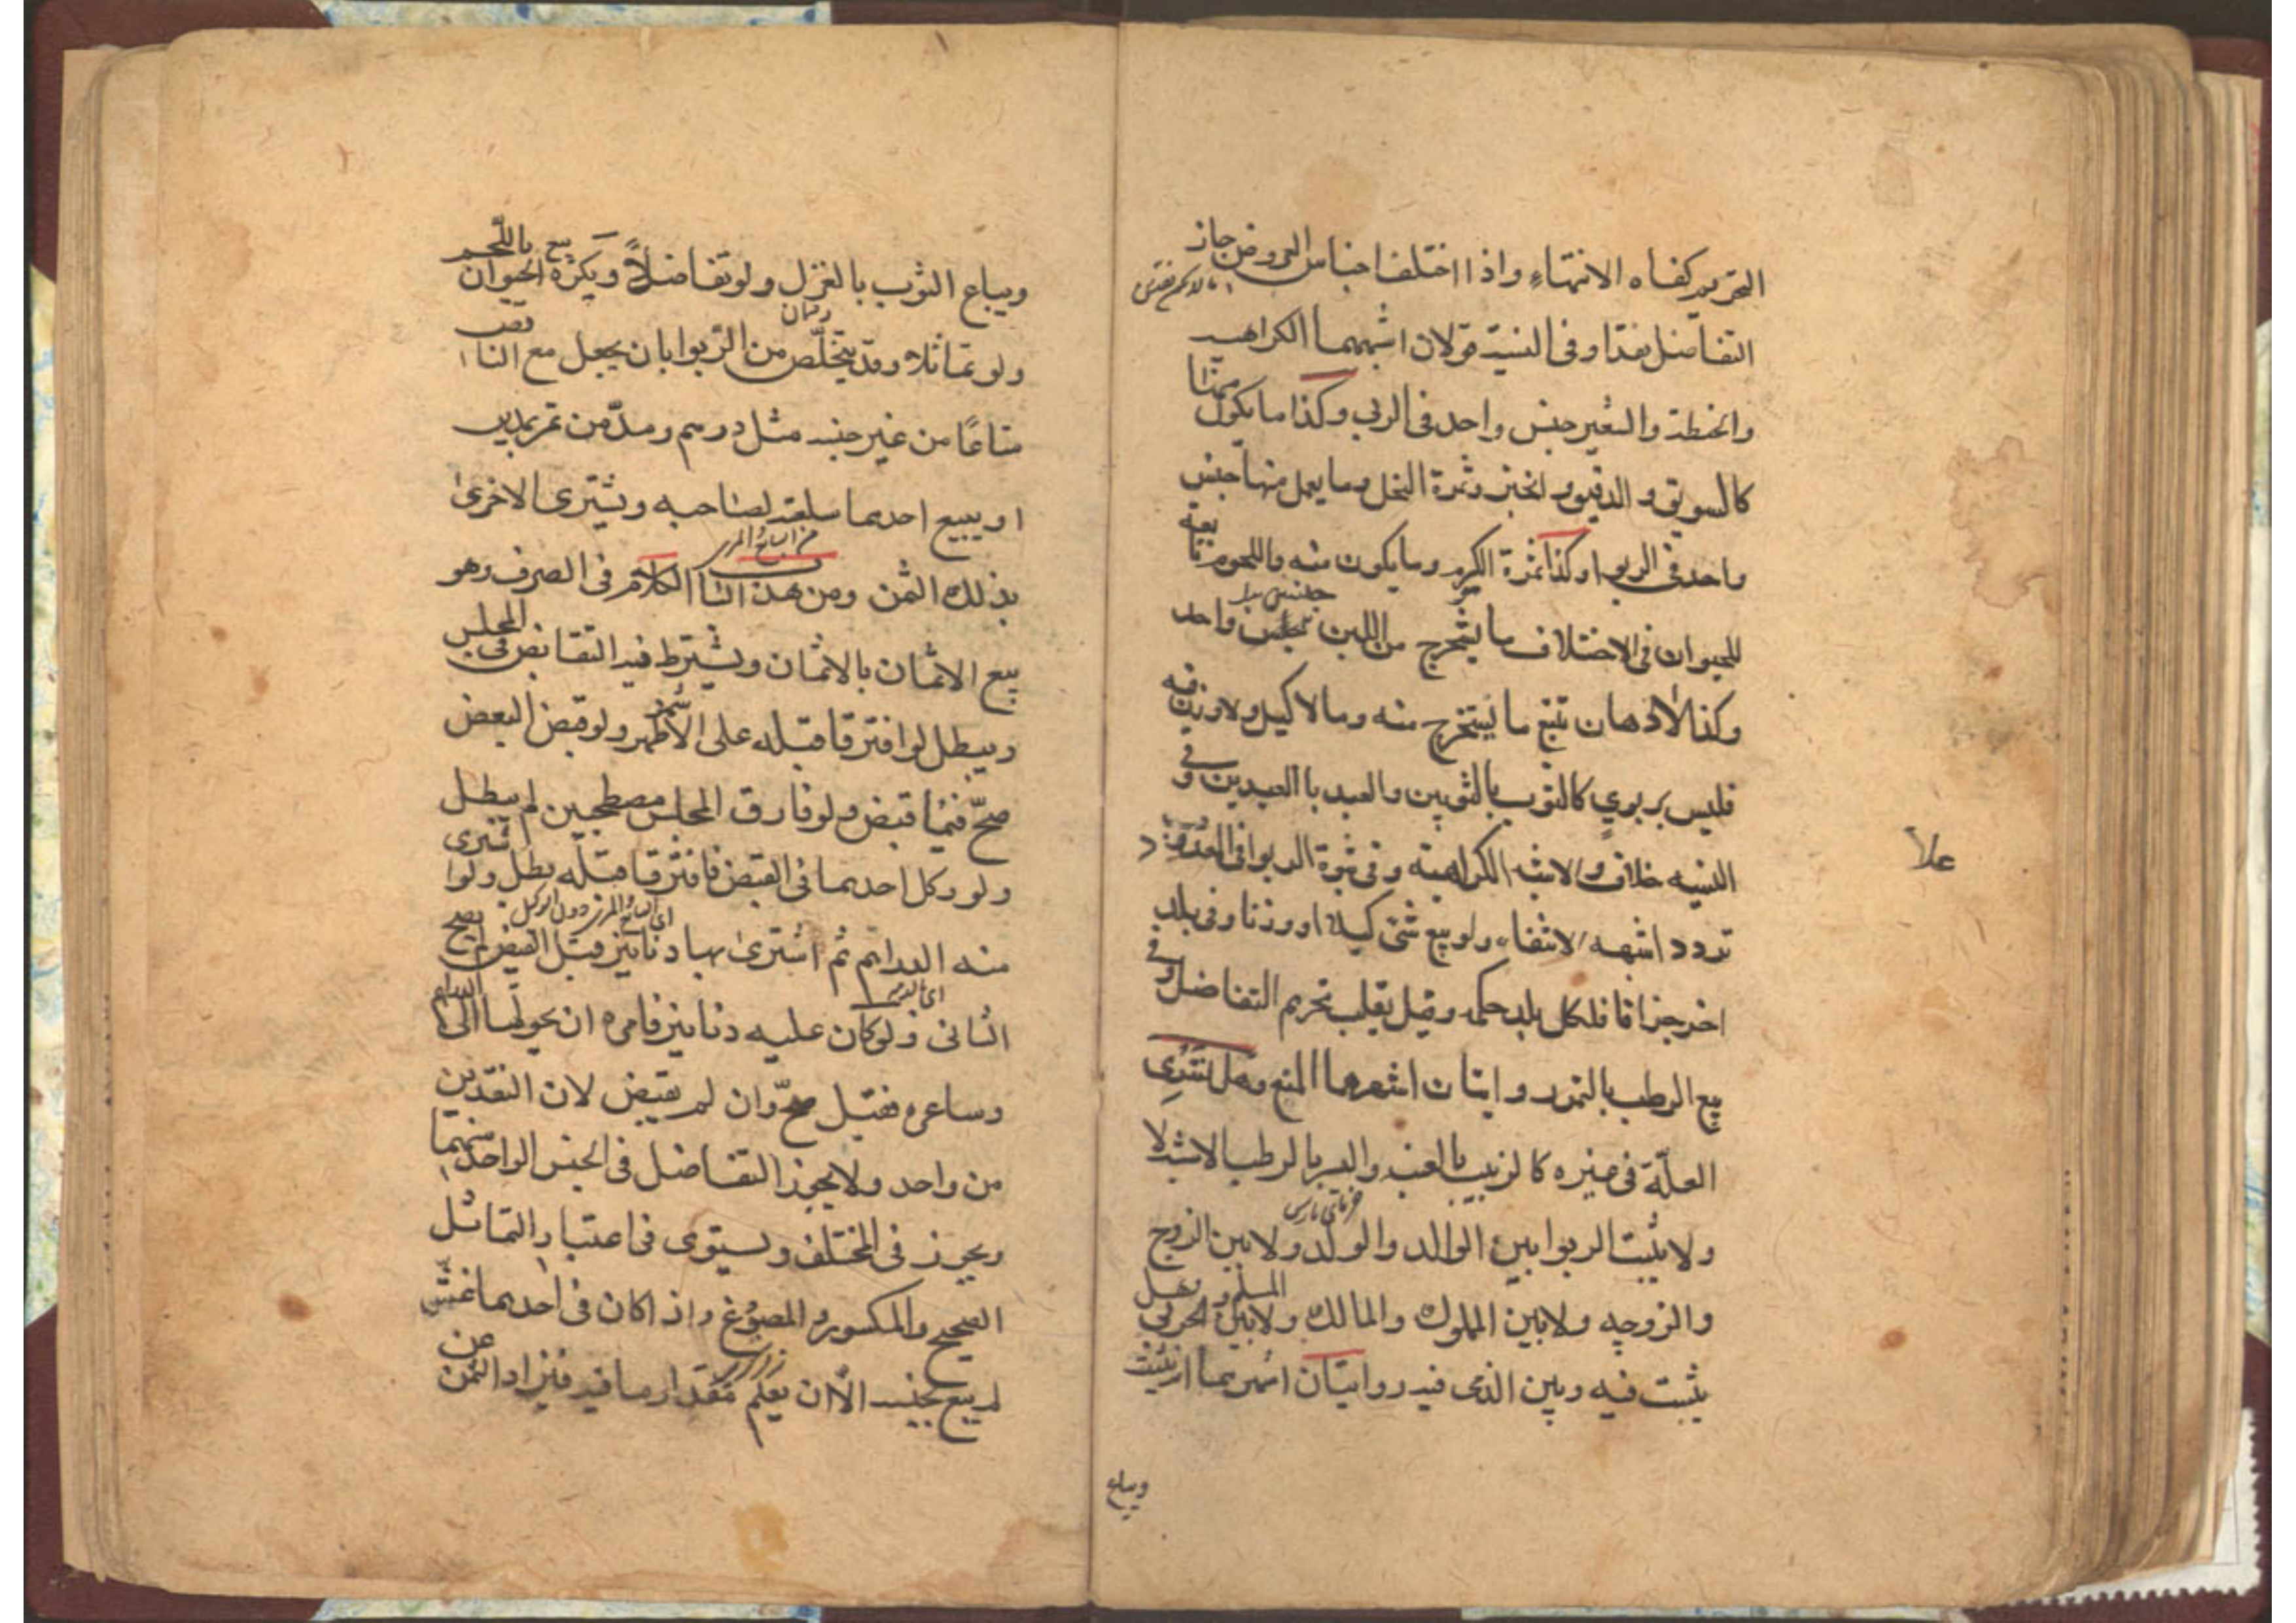 التحريم كفاه الانتهاء واذا اختلف اجناس العروض جاز
التفاضل نقدا وفى النسية قولان اشبههما الكراهيه
والحنطة والشعير جنس واحد فى الربى وكذا ما يكون منهما
كالسويق و الدقيق و الخبز وثمرة النخل وما يعمل منها جنس
واحد فى الربوا وكذا ثمرة الكرم وما يكون منه واللحوم تابعة
للحيوان فى الاختلاف ما يستخرج من اللبن جنس واحد
وكذا الادهان تتبع ما يستخرج منه وما لا كيل ولا وزن فيه
فليس بربوي كالثوب بالثوبين والعبد بالعبدين وفى
النسيه خلاف والاشبه الكراهية وفى ثبوت الربوا فى المعدود
تردد اشبهه الانتفاء ولو بيع شئ كيلا او وزنا وفى بلد
اخر جزافا فلكل بلد حكمه وقيل يغلب تحريم التفاضل وفى
بيع الرطب بالتمر روايتان اشهرهما المنع وهل تسرى
العلّة فى غيره كالزبيب بالعنب والبسر بالرطب الاشبه لا
ولا يثبت الربوا بين الوالد والولد ولا بين الزوج
والزوجه ولا بين المملوك والمالك ولا بين المسلم والحربى وهل
يثبت فيه وبين الذمى فيه روايتان اشهرهما انه يثبت
ويباع
علا
ويباع الثوب بالغزل ولو تفاضلاً ويكره بيع الحيوان باللّحم
ولو تماثلا وقد يتخلّص من الرّبوا بان يجعل مع الناقص
متاعًا من غير جنسه مثل درهم ومدّ من تمر بمدين
او يبيع احدهما سلعته لصاحبه ويشترى الاخرى
بذلك الثمن ومن هذا الباب الكلام فى الصرف وهو
بيع الاثمان بالاثمان ويشترط فيه التقابض فى المجلس
ويبطل لو افترقا قبله على الاشهر ولو قبض البعض
صحّ فيما قبض ولو فارق المجلس مصطحبين لم يبطل
ولو وكل احدهما فى القبض فافترقا قبله بطل ولو اشترى
منه الدراهم ثم اشترى بها دنانير قبل القبض لم يصح
الثانى ولو كان عليه دنانير فامره ان يحولها الى الدراهم
وساعره فقبل صحّ وان لم يقبض لان النقدين
من واحد ولا يجوز التفاضل فى الجنس الواحد منهما
ويجوز فى المختلف ويستوى فى اعتبار التماثل
الصحيح والمكسور و المصوغ واذا كان فى احدهما غشّ
لم يبع بجنسه الاّ ان يعلم مقدار ما فيه فيزاد الثمن عن